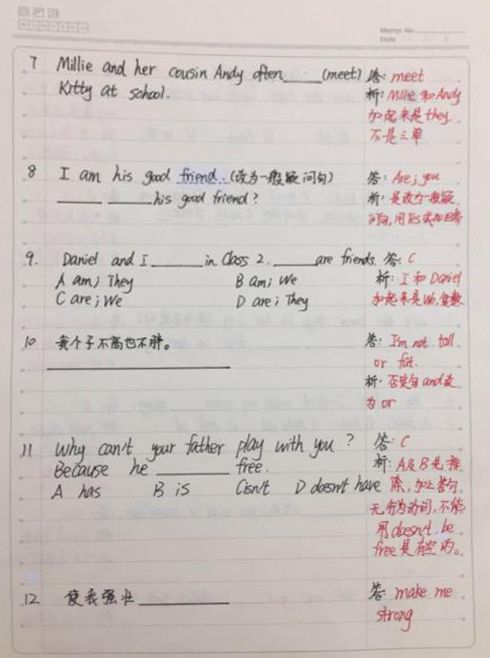 Memo No.
Date / /
7 Millie and her cousin Andy often____(meet)
Kitty at school.
答: meet
析: Millie 和 Andy
加起来是 they.
不是三单
8 I am his good friend.(改为一般疑问句)
____ ____ his good friend?
答: Are; you
析: 是改为一般疑
问句, 用
9. Daniel and I______in Class 2. _____are friends.
A am; They B am; We
C are; We D are; They
答: C
析: I 和 Daniel
加起来是 We, 复数
10 我个子不高也不胖。
答: I'm not tall
or fat.
析: 否定句 and 改
为 or
11 Why can't your father play with you?
Because he ________ free.
A has B is C isn't D doesn't have
答: C
析: A及B先排
除, 加上答句
无行为动词, 不能
用 doesn't. be
free 是有空的。
12 使我强壮__________
答: make me
strong